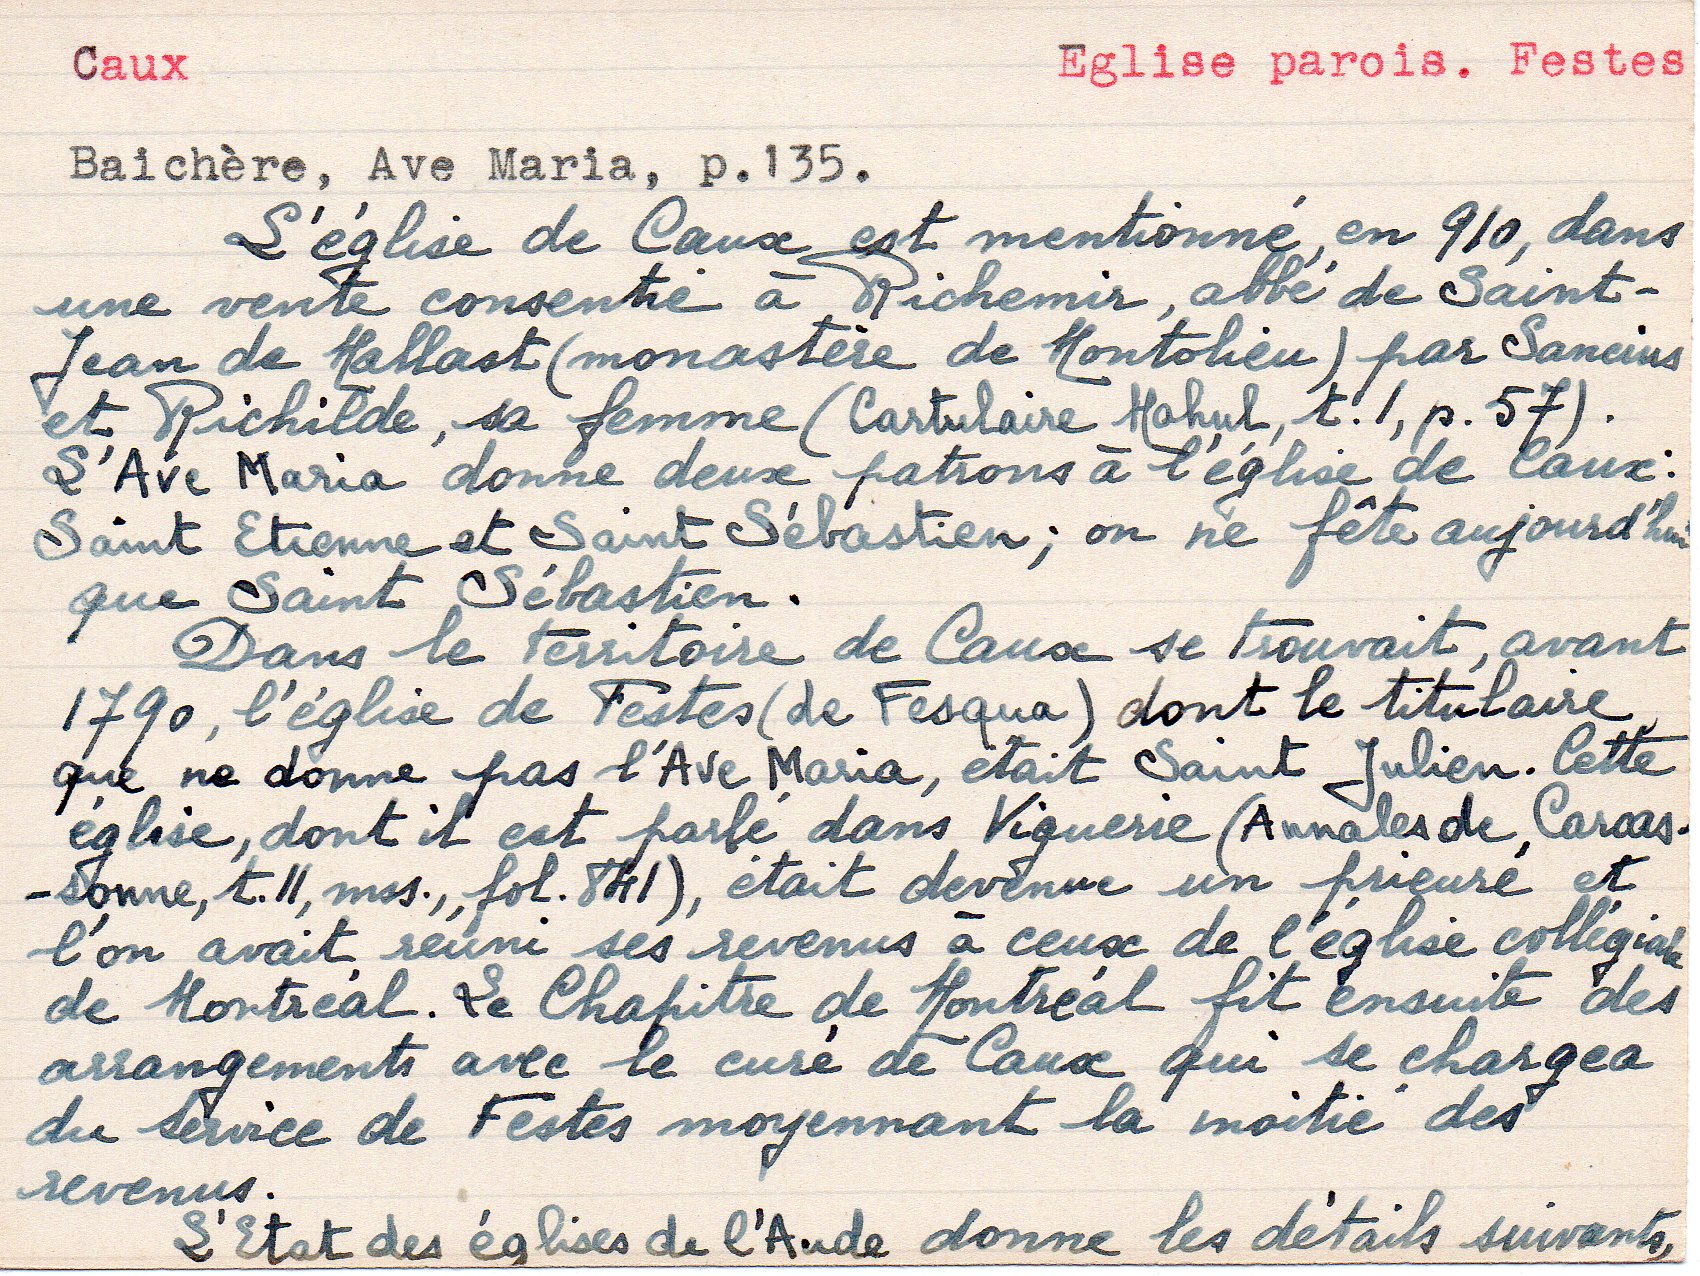 Caux Eglise parois. Festes
Baichère, Ave Maria, p.135.
L'église de Caux est mentionné, en 910, dans
une vente consentie à Richemir, abbé de Saint-
Jean de Mallast (monastère de Montolieu) par Sancius
et Richilde, sa femme (Cartulaire Mahul, t.1, p.57).
L'Ave Maria donne deux patrons à l'église de Caux:
Saint Etienne et Saint Sébastien; on ne fête aujourd'hui
que Saint Sébastien.
Dans le territoire de Caux se trouvait, avant
1790, l'église de Festes (de Fesqua) dont le titulaire,
que ne donne pas l'Ave Maria, était Saint Julien. Cette
église, dont il est parlé dans Viguerie (Annales de Carcas-
-sonne, t.II, mss., fol. 841), était devenue un prieuré et
l'on avait réuni ses revenus à ceux de l'église collégiale
de Montréal. Le Chapitre de Montréal fit ensuite des
arrangements avec le curé de Caux qui se chargea
du service de Festes moyennant la moitié des
revenus.
L'Etat des églises de l'Aude donne les détails suivants,